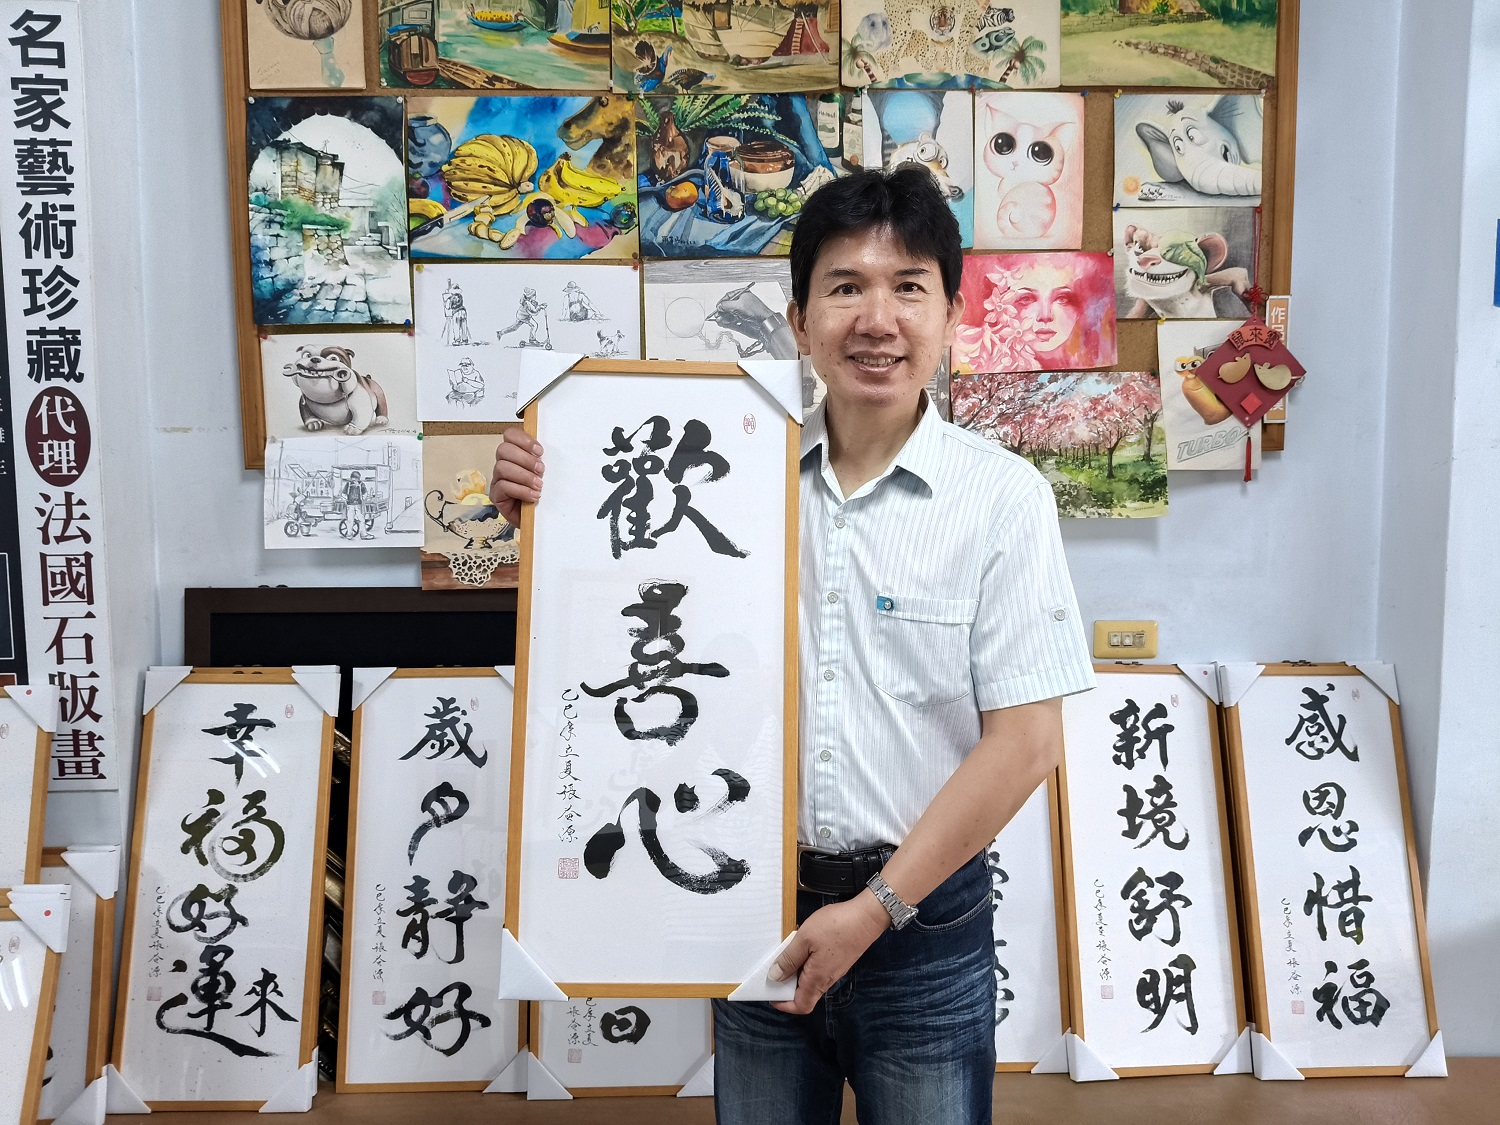 名家藝術珍藏代理法國石版畫
歡善心
乙巳年立夏張谷源
幸福好運來
乙巳年立夏張谷源
歲月靜好
乙巳年立夏張谷源
日
新境舒明
乙巳年夏至張谷源
感恩惜福
乙巳年立夏張谷源
TURBO
鼠來寶